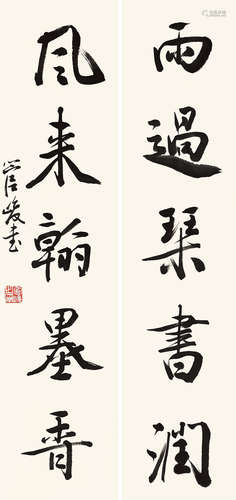 雨過琴書潤
風来翰墨香
管峻書